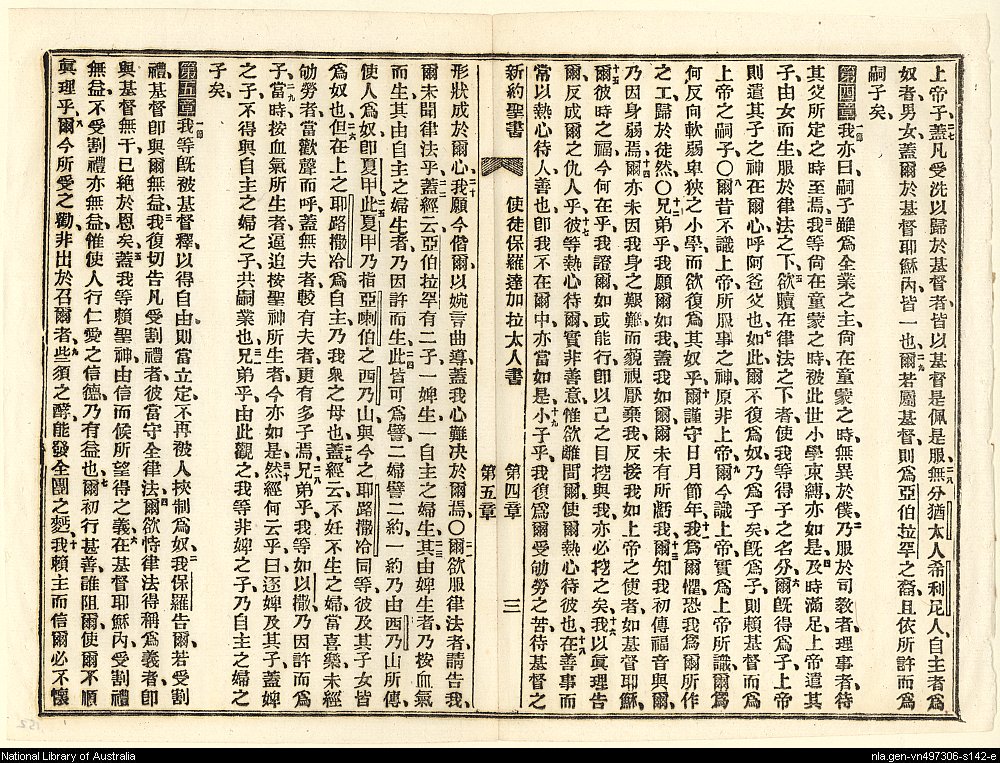 上帝子、蓋凡受洗以歸於基督者、皆以基督是佩是服、無分猶太人希利尼人、自主者爲
奴者、男女、蓋爾於基督耶穌內皆一也、爾若屬基督、則爲亞伯拉罕之裔、且依所許而爲
嗣子矣、
第四章 我亦曰、嗣子雖爲全業之主、尚在童蒙之時、無異於僕、乃服於司教者理事者、待
其父所定之時至焉、我等尚在童蒙之時、被此世小學束縛、亦如是、及時滿足、上帝遣其
子、由女而生、服於律法之下、欲贖在律法之下者、使我等得子之名分、爾旣得爲子、上帝
則遣其子之神在爾心、呼阿爸父也、如此、爾不復爲奴、乃爲子矣、旣爲子、則賴基督而爲
上帝之嗣子、〇爾昔不識上帝、所服事之神、原非上帝、爾今識上帝、實爲上帝所識、爾爲
何反向軟弱卑狹之小學、而欲復爲其奴乎、爾謹守日月節年、我爲爾懼、恐我爲爾所作
之工歸於徒然、〇兄弟乎、我願爾如我、蓋我如爾、爾未有所虧我、爾知我初傳福音與爾、
乃因身弱焉、爾亦未因我身之艱難而藐視厭棄我、反接我如上帝之使者、如基督耶穌、
爾彼時之福、今何在乎、我證爾如或能行、即以己之目挖與我、亦必挖之矣、我以眞理告
爾、反成爾之仇人乎、彼等熱心待爾、實非善意、惟欲離間爾、使爾熱心待彼也、在善事而
常以熱心待人、善也、即我不在爾中、亦當如是、小子乎、我復爲爾受劬勞之苦、待基督之
新約聖書 使徒保羅達加拉太人書 第四章 第五章 三
形狀成於爾心、我願今偕爾、以婉言曲導、蓋我心難决於爾焉、〇爾欲服律法者、請告我、
爾未聞律法乎、蓋經云、亞伯拉罕有二子、一婢生、一自主之婦生、其由婢生者、乃按血氣
而生、其由自主之婦生者、乃因許而生、此皆可爲譬、二婦譬二約、一約乃由西乃山所傳、
使人爲奴、即夏甲、此夏甲乃指亞喇伯之西乃山、與今之耶路撒冷同等、彼及其子女皆
爲奴也、但在上之耶路撒冷爲自主、乃我衆之母也、蓋經云、不妊不生之婦當喜樂、未經
劬勞者、當歡聲而呼、蓋無夫者較有夫者、更有多子焉、兄弟乎、我等如以撒、乃因許而爲
子、當時按血氣所生者、逼迫按聖神所生者、今亦如是、然經何云乎、曰、逐婢及其子、蓋婢
之子不得與自主之婦之子共嗣業也、兄弟乎、由此觀之、我等非婢之子、乃自主之婦之
子矣、
第五章 我等旣被基督釋以得自由、則當立定、不再被人挾制爲奴、我保羅告爾、若受割
禮、基督即與爾無益、我復切告凡受割禮者、彼當守全律法、爾欲恃律法得稱爲義者、即
與基督無干、已絕於恩矣、蓋我等賴聖神、由信而候所望得之義、在基督耶穌內、受割禮
無益、不受割禮亦無益、惟使人行仁愛之信德、乃有益也、爾初行甚善、誰阻爾、使爾不順
眞理乎、爾今所受之勸、非出於召爾者、些須之酵、能發全團之麪、我賴主而信爾必不懷
National Library of Australia
nla.gen-vn497306-s142-e